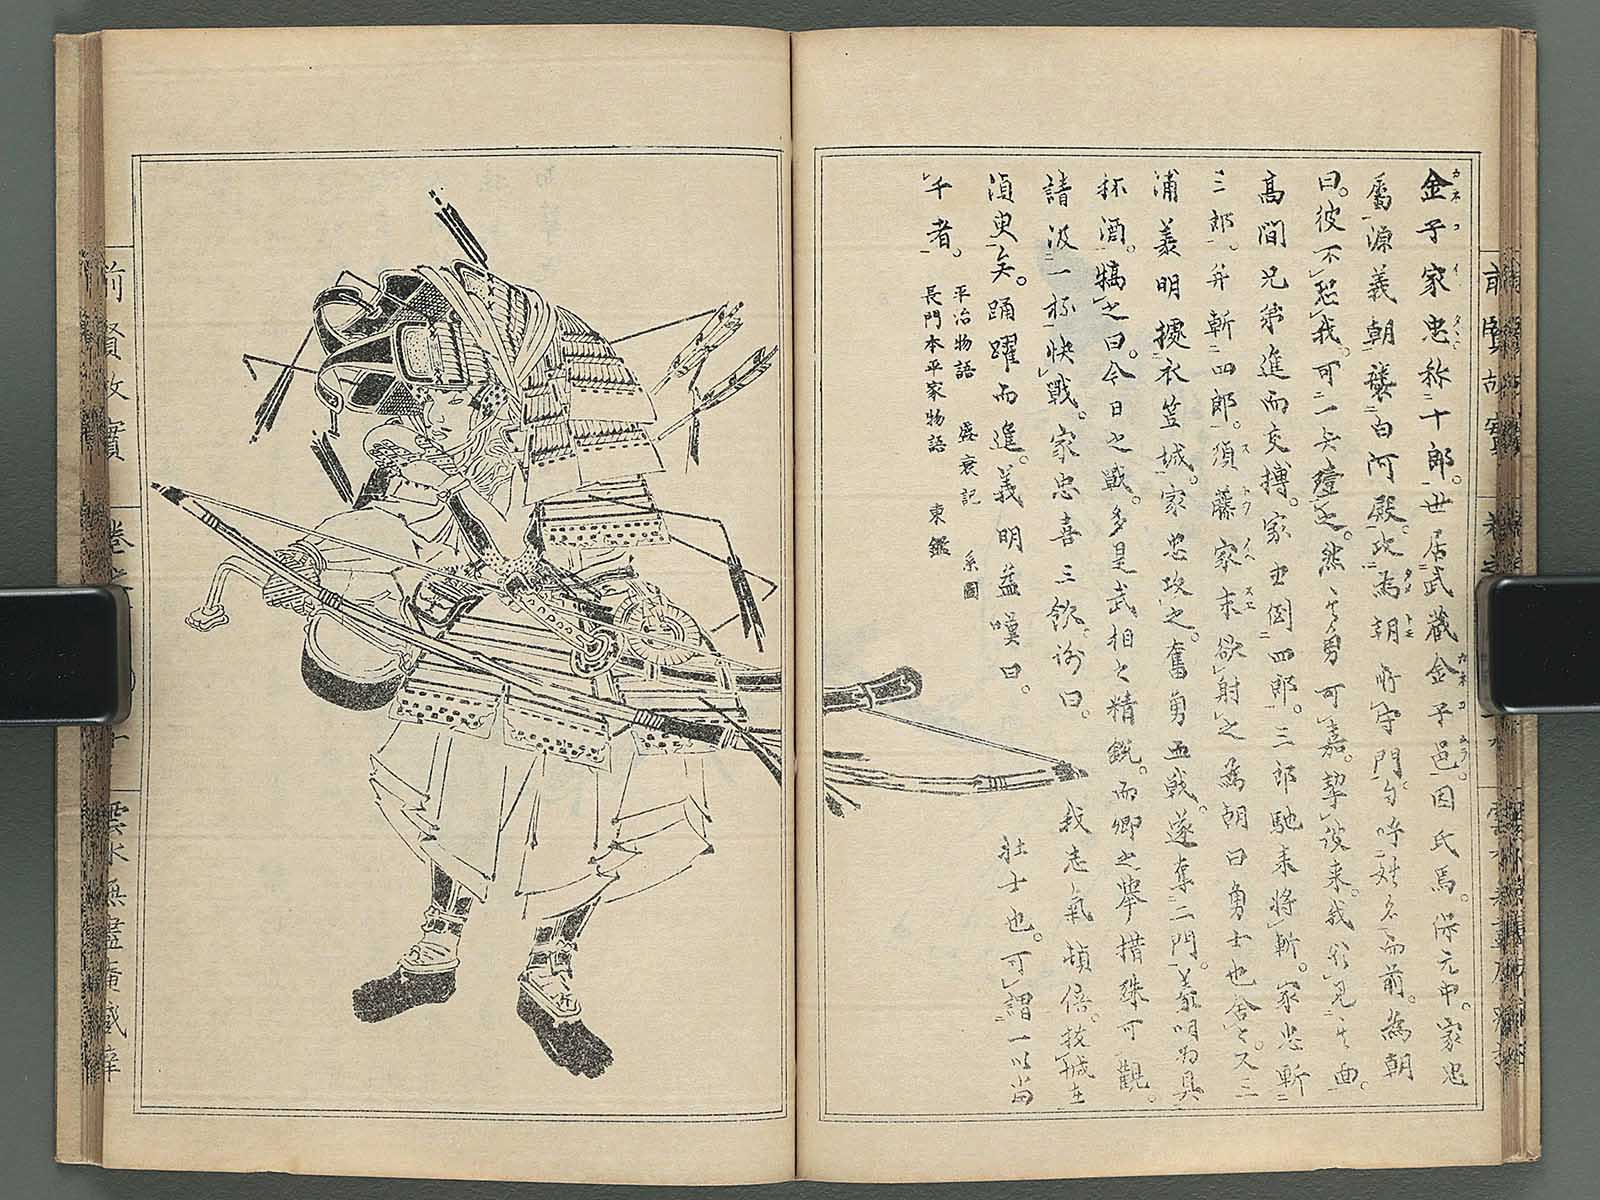 金子家忠称十郎。世居武蔵金子邑。因氏焉。保元中。家忠
属源義朝襲白河殿攻為朝所守門自呼姓名而前。為朝
曰。彼不恐我。可一矢殪之。然其勇可嘉。挈彼来。我欲見其面。
高間兄弟進而交搏。家忠倒四郎。三郎馳来将斬。家忠斬
三郎。并斬四郎。須藤家末欲射之為朝曰勇士也舎之。又三
浦義明據衣笠城。家忠攻之。奮勇血戦。遂奪二門。義明為具
杯酒。犒之曰。今日之戦。多是武相之精鋭。而卿之挙措殊可観。
請汲一杯快戦。家忠喜三飲。謝曰。我志気頓倍。抜城在
湏臾矣。踊躍而進。義明益嘆曰。壮士也。可謂一以当
千者。
平治物語 盛衰記 系圖
長門本平家物語 東鑑
前賢故實